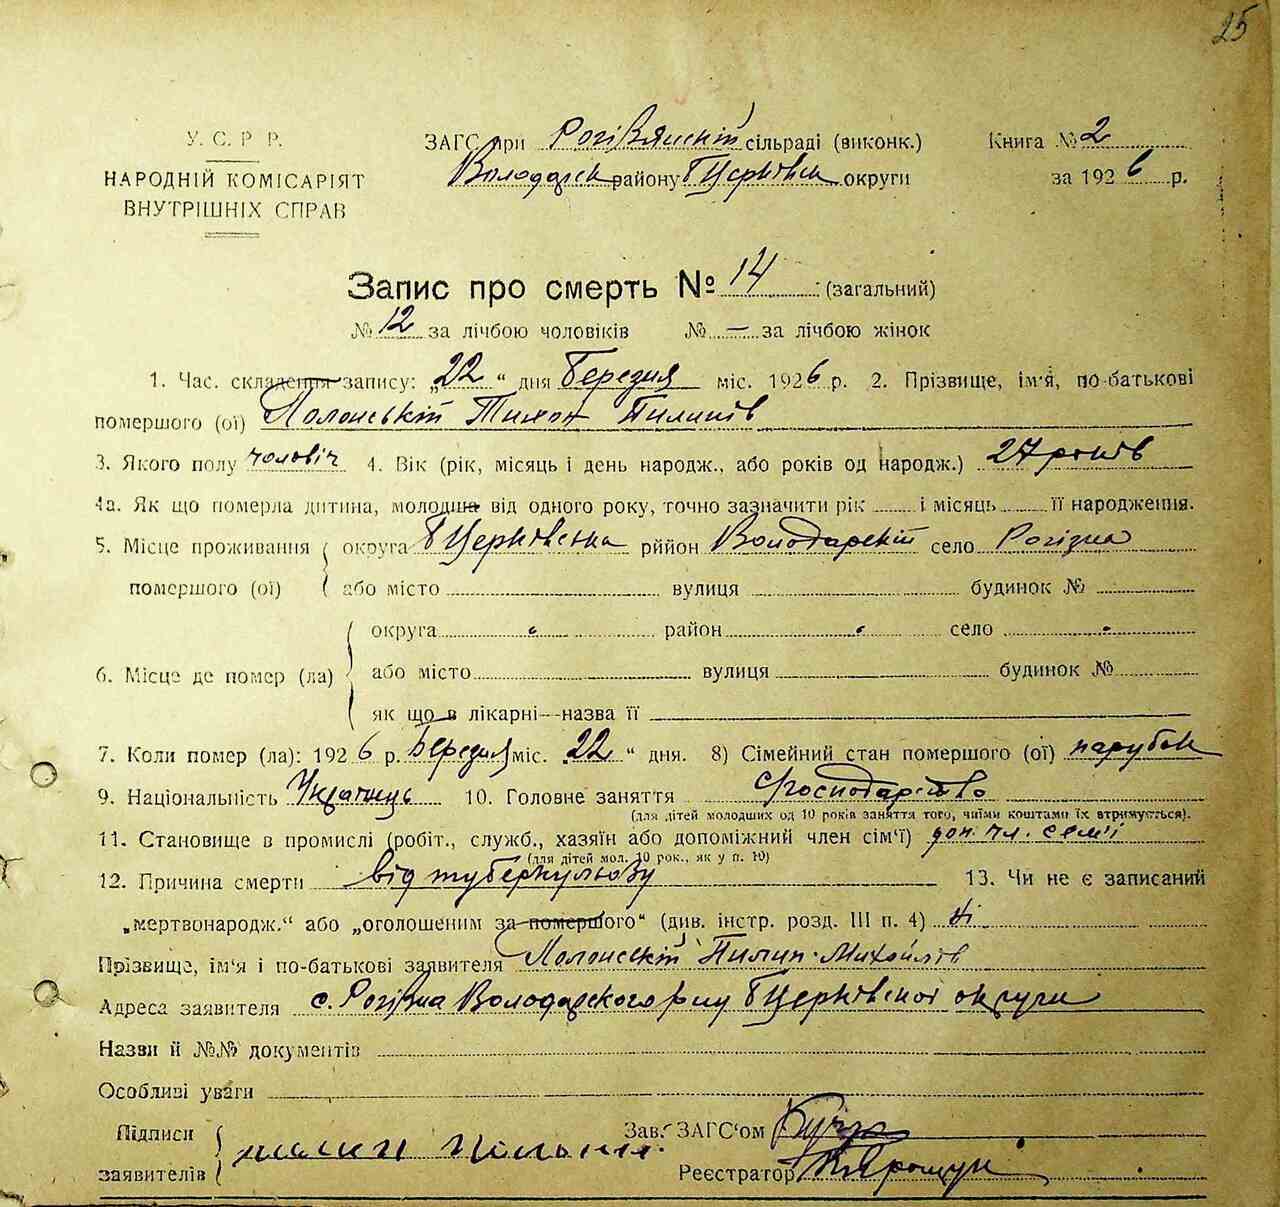 25
У. С. Р. Р.
НАРОДНІЙ КОМІСАРІЯТ
ВНУТРІШНІХ СПРАВ
ЗАГС при сільраді (виконк.)
Володарськ району БЦерківськ округи
Книга № 2
за 1926 р.
Запис про смерть № 14 (загальний)
№ 12 за лічбою чоловіків № — за лічбою жінок
1. Час. складення запису: „22“ дня Березня міс. 1926 р. 2. Прізвище, ім'я, по-батькові
помершого (ої) Полонський Тихон Пилипів
3. Якого полу чоловіч 4. Вік (рік, місяць і день народж., або років од народж.) 27 років
4а. Як що померла дитина, молодша від одного року, точно зазначити рік і місяць її народження.
5. Місце проживання округа БЦерківська рйон Володарський село Рогізна
помершого (ої) або місто вулиця будинок №
округа " район " село "
6. Місце де помер (ла) або місто вулиця будинок №
як що в лікарні—назва її
7. Коли помер (ла): 1926 р. Березня міс. „22“ дня. 8) Сімейний стан помершого (ої) парубок
9. Національність Українець 10. Головне заняття Господарство
(для дітей молодших од 10 років заняття того, чиїми коштами їх втримується).
11. Становище в промислі (робіт., служб., хазяїн або допоміжний член сім'ї) доп. чл. семʼї
(для дітей мол. 10 рок., як у п. 10)
12. Причина смерти від туберкульозу 13. Чи не є записаний
„мертвонародж.“ або „оголошеним за помершого“ (див. інстр. розд. III п. 4) ні
Прізвище, ім'я і по-батькові заявителя Полонский Пилип Михайлів
Адреса заявителя с. Рогізна Володарського р-ну БЦерківської округи
Назви й №№ документів
Особливі уваги
Підписи
заявителів
Зав. ЗАГС'ом
Реєстратор